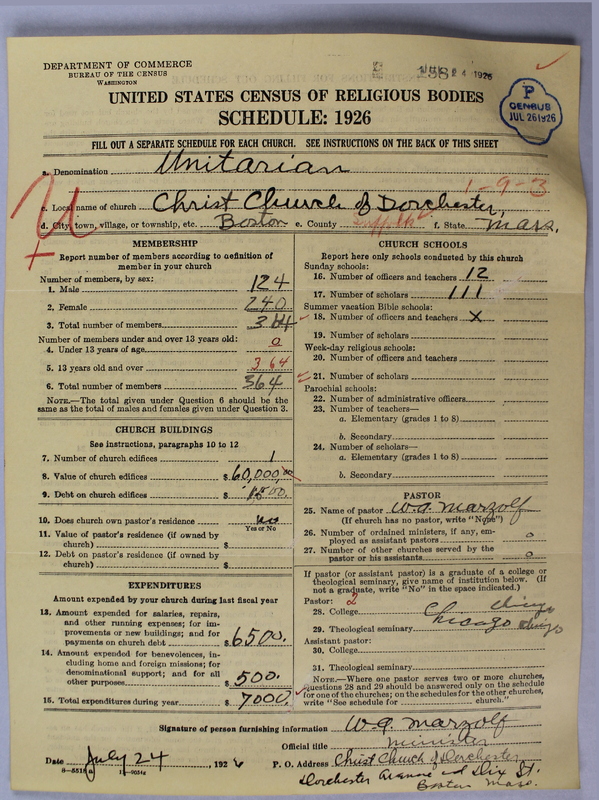 DEPARTMENT OF COMMERCE
BUREAU OF THE CENSUS
WASHINGTON
24 1926
P
CENSUS
JUL 26 1926
UNITED STATES CENSUS OF RELIGIOUS BODIES
SCHEDULE: 1926
FILL OUT A SEPARATE SCHEDULE FOR EACH CHURCH. SEE INSTRUCTIONS ON THE BACK OF THIS SHEET
a. Denomination Unitarian
1-9-3
c. Local name of church Christ Church of Dorchester,
d. City, town, village, or township, etc. Boston e. County Suffolk f. State Mass.
MEMBERSHIP
Report number of members according to definition of
member in your church
Number of members, by sex:
1. Male 124
2. Female 240
3. Total number of members 364
Number of members under and over 13 years old:
4. Under 13 years of age 0
5. 13 years old and over 364
6. Total number of members 364
NOTE.—The total given under Question 6 should be
same as the total of males and females given under Question 3.
CHURCH BUILDINGS
See instructions, paragraphs 10 to 12
7. Number of church edifices 1
8. Value of church edifices $60,000.00
9. Debt on church edifices $
10. Does church own pastor's residence no
Yes or No
11. Value of pastor's residence (if owned by
church) $
12. Debt on pastor's residence (if owned by
church) $
EXPENDITURES
Amount expended by your church during last fiscal year
13. Amount expended for salaries, repairs,
and other running expenses; for im-
provements or new buildings; and for
payments on church debt $6500.
14. Amount expended for benevolences, in-
cluding home and foreign missions; for
denominational support; and for all
other purposes $500.
15. Total expenditures during year $7000.
CHURCH SCHOOLS
Report here only schools conducted by this church
Sunday schools:
16. Number of officers and teachers 12
17. Number of scholars 111
Summer vacation Bible schools:
18. Number of officers and teachers X
19. Number of scholars
Week-day religious schools:
20. Number of officers and teachers
21. Number of scholars
Parochial schools:
22. Number of administrative officers
23. Number of teachers—
a. Elementary (grades 1 to 8)
b. Secondary
24. Number of scholars—
a. Elementary (grades 1 to 8)
b. Secondary
PASTOR
25. Name of pastor W. G. Marzolf
(If church has no pastor, write "None")
26. Number of ordained ministers, if any, em-
ployed as assistant pastors 0
27. Number of other churches served by the
pastor or his assistants 0
If pastor (or assistant pastor) is a graduate of a college or
theological seminary, give name of institution below. (If
not a graduate, write "No" in the space indicated.)
Pastor: 2
28. College
29. Theological seminary Chicago
Assistant pastor:
30. College
31. Theological seminary
NOTE.—Where one pastor serves two or more churches,
questions 28 and 29 should be answered only on the schedule
for one of the churches; on the schedules for the other churches,
write "See schedule for church."
Signature of person furnishing information W. G. Marzolf
Official title minister
Date July 24, 1926 P. O. Address Christ Church of Dorchester
Dorchester Avenue and Dix St.
Boston Mass.